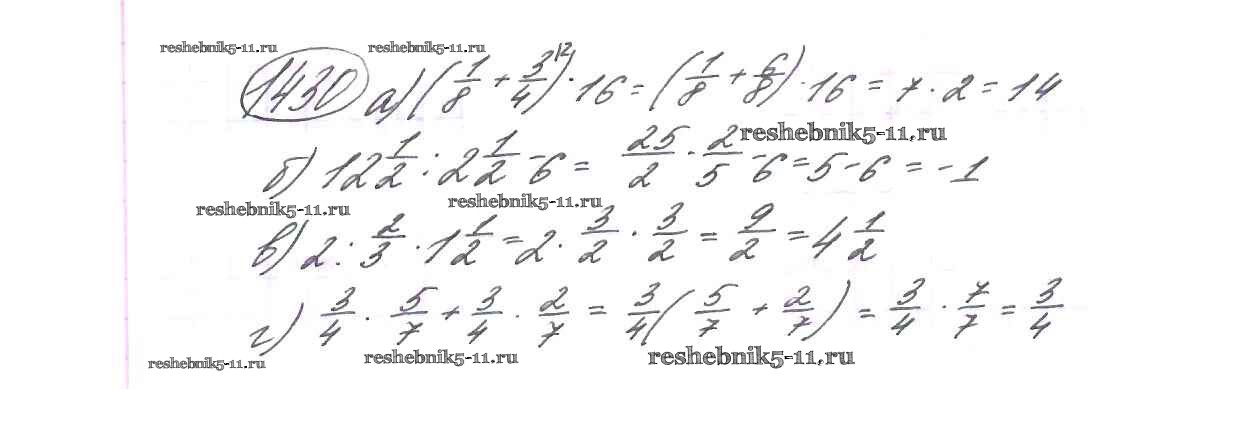 reshebnik5-11.ru reshebnik5-11.ru
1430 а) (1/8 + 3/4^12) · 16 = (1/8 + 6/8) · 16 = 7 · 2 = 14
reshebnik5-11.ru
б) 12 1/2 : 2 1/2 - 6 = 25/2 · 2/5 - 6 = 5 - 6 = -1
reshebnik5-11.ru reshebnik5-11.ru
в) 2 : 2/3 · 1 1/2 = 2 · 3/2 · 3/2 = 9/2 = 4 1/2
г) 3/4 · 5/7 + 3/4 · 2/7 = 3/4 (5/7 + 2/7) = 3/4 · 7/7 = 3/4
reshebnik5-11.ru reshebnik5-11.ru reshebnik5-11.ru